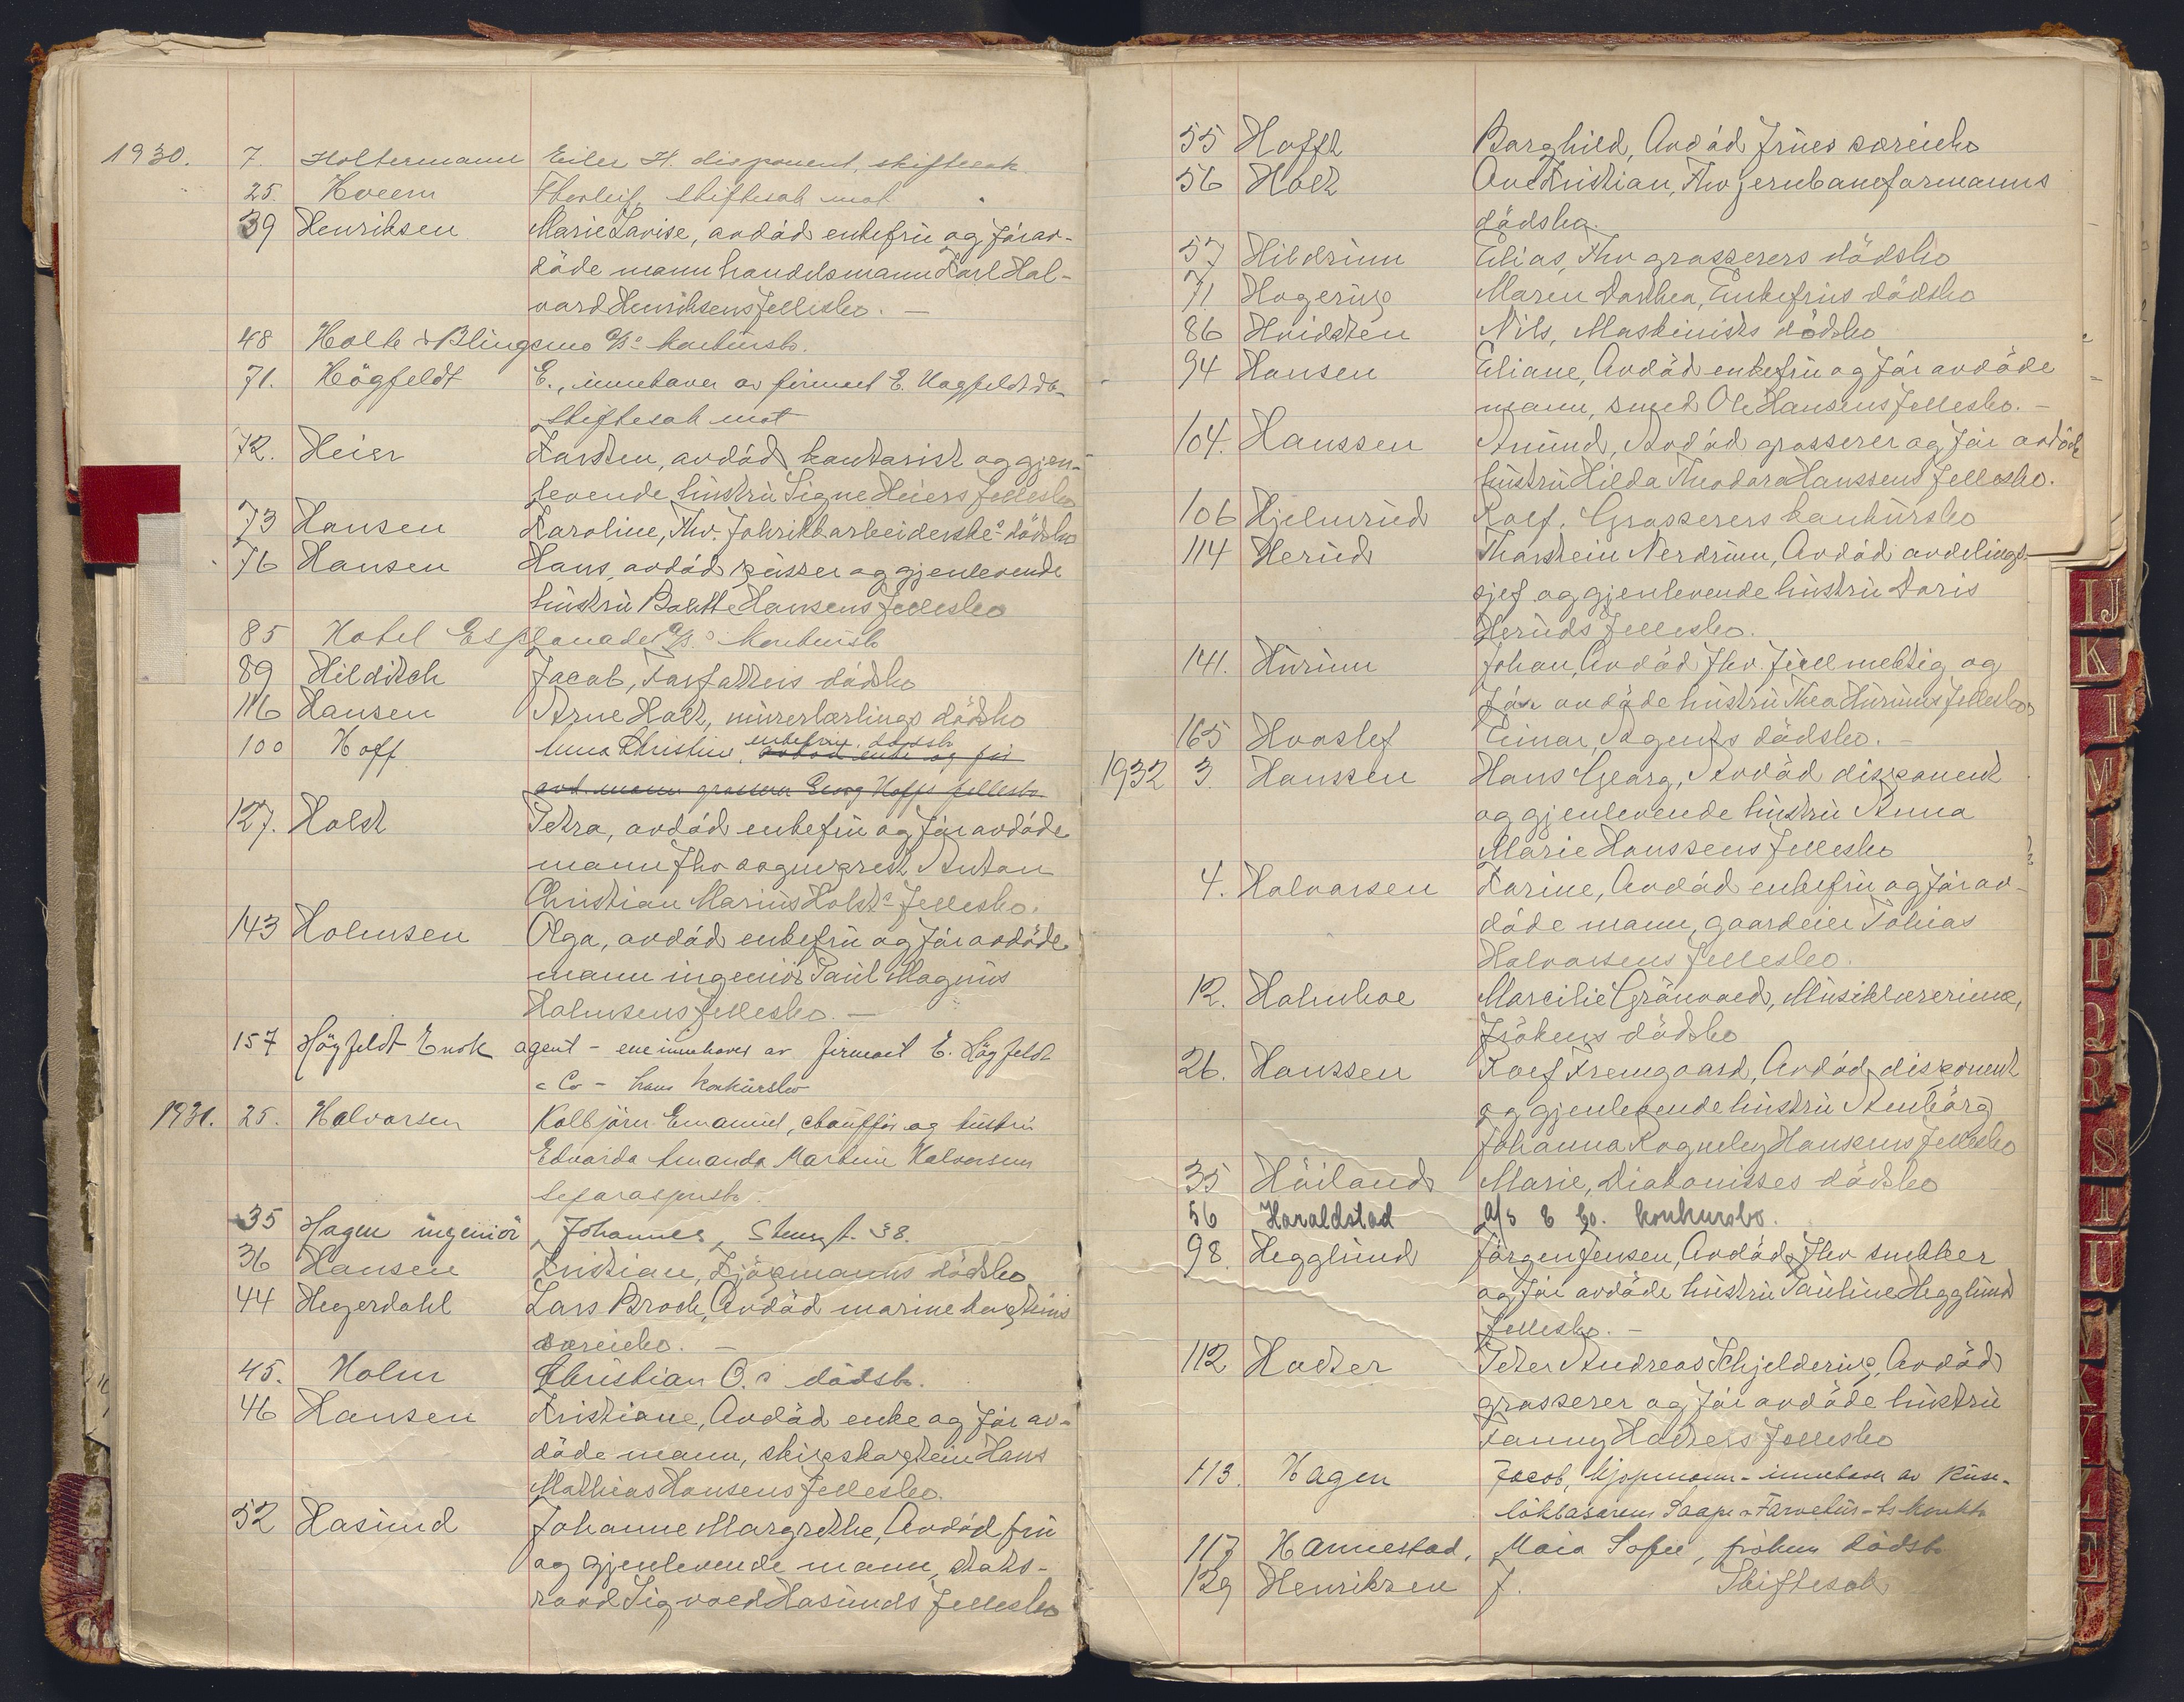 1930. 7. Holtermann Eiler H. disponent, skiftesak.
25. Hveem Thorleif, skiftesak mot
39 Henriksen Marie Lovise, avdöd enkefru og för av-
döde mann handelsmann Karl Hal-
vard Henriksens fellesbo. —
48 Holte & Blingsmo A/S' konkursbo.
71. Högfeldt E., innehaver av firmaet E. Högfeldt & Co
skiftesak mot
72. Heier Karsten, avdöd kontorist og gjen-
levende hustru Signe Heiers fellesbo
73 Hansen Karoline, Fhv. fabrikkarbeiderske's dödsbo
76 Hansen Hans, avdöd pusser og gjenlevende
hustru Bolette Hansens fellesbo
85 Hotel Esplanade A/S' konkursbo
89 Hilditch Jacob, Forfatters dödsbo
116 Hansen Arne Holt, murerlærlings dödsbo
100 Hoff Anna Christine, enkefru, dödsbo avdöd enke og för
avd. mann grosserer Georg Hoffs fellesbo
127. Holst Petra, avdöd enkefru og för avdöde
mann fhv sogneprest Anton
Christian Marius Holst's fellesbo.
143 Holmsen Olga, avdöd enkefru og för avdöde
mann ingeniör Paul Magnus
Holmsens fellesbo. —
157 Högfeldt Enok agent - eneinnehaver av firmaet E. Högfeldt
& Co - hans konkursbo
1931. 25. Halvorsen Kolbjörn Emanuel, chaufför og hustru
Edvarda Amanda Martine Halvorsens
separasjonsbo.
35 Hagen ingeniör, Johannes, Stensgt. 38.
36 Hansen Kristian, Kjöpmanns dödsbo
44 Hegerdahl Lars Broch, Avdöd marinekapteins
særeiebo. —
45. Holm Christian O.s dödsbo.
46 Hansen Kristiane, Avdöd enke og för av-
döde mann, skipskaptein Hans
Mathias Hansens fellesbo.
52 Hasund Johanne Margrethe, Avdöd fru
og gjenlevende mann, stats-
raad Sigvald Hasunds fellesbo
55 Hofft Borghild, Avdöd frues særeiebo
56 Holt Ove Kristian, Fhv jernbaneformanns
dödsbo.
57 Hildrum Elias, Fhv grosserers dödsbo
71 Hogerup Maren Dorthea, Enkefrus dödsbo
86 Hvidsten Nils, Maskinists dödsbo
94 Hansen Eliane, Avdöd enkefru og för avdöde
mann, smed Ole Hansens fellesbo. —
104. Hanssen Amund, Avdöd grosserer og för avdöde
hustru Hilda Theodora Hanssens fellesbo.
106 Hjelmrud Rolf, Grosserers konkursbo
114 Herud Thorstein Nerdrum, Avdöd avdelings-
sjef og gjenlevende hustru Doris
Heruds fellesbo.
141. Hurum Johan, Avdöd fhv. fuldmektig og
för avdöde hustru Thea Hurums fellesbo
165 Hvoslef Einar, Agents dödsbo. —
1932 3. Hanssen Hans Georg, Avdöd disponent
og gjenlevende hustru Anna
Marie Hanssens fellesbo
4. Halvorsen Karine, Avdöd enkefru og för av-
döde mann, gaardeier Tobias
Halvorsens fellesbo.
12. Holmboe Marcilie Grönvold, Musiklærerinne,
frökens dödsbo
26. Hanssen Rolf Fremgaard, Avdöd disponent
og gjenlevende hustru Annbörg
Johanna Hanssens fellesbo
35 Höiland Marie, Diakonisses dödsbo
56 Haraldstad A/S & Co. konkursbo.
98. Hegglund Jörgen Jensen, Avdöd fhv snekker
og för avdöde hustru Pauline Hegglund
fellesbo. —
112 Holter Peter Andreas Schjelderup, Avdöd
grosserer og för avdöde hustru
Fanny Holters fellesbo
113. Hagen Jacob, kjöpmann - innehaver av Ruse-
lökbasarens Saape & Farvehus - hs konkbo
117 Hannestad, Maia Sofie, fröken dödsbo
129 Henriksen J. Skiftesak
IJ
K
I
M
N
O
P
Q
R
S
T
U